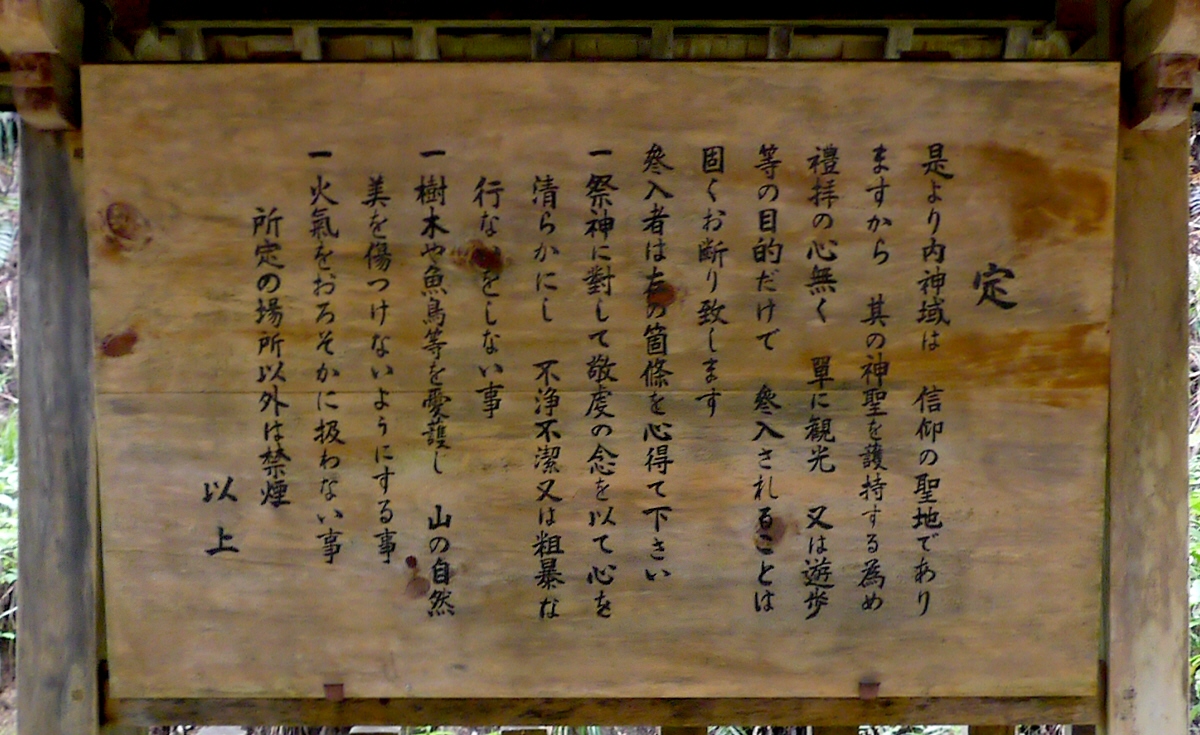 定
是より内神域は 信仰の聖地であり
ますから 其の神聖を護持する為め
禮拝の心無く 單に観光 又は遊歩
等の目的だけで 參入されることは
固くお断り致します
參入者は左の箇條を心得て下さい
一祭神に對して敬虔の念を以て心を
清らかにし 不浄不潔又は粗暴な
行ないをしない事
一樹木や魚鳥等を愛護し 山の自然
美を傷つけないようにする事
一火氣をおろそかに扱わない事
所定の場所以外は禁煙
以上